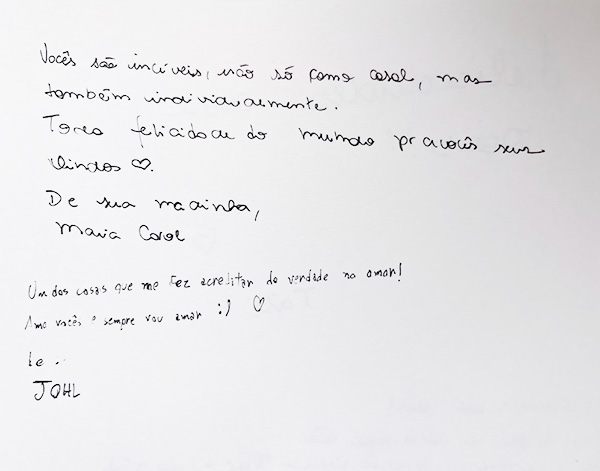 Vocês são incíveis, não só como casal, mas
também individualmente.
Toda felicidade do mundo pra vocês seus
lindos ♡.
De sua madinha,
Maria Carol
Um dos casas que me fez acreditar de verdade no amor!
Amo vocês e sempre vou amar :) ♡
Le .
JOHL